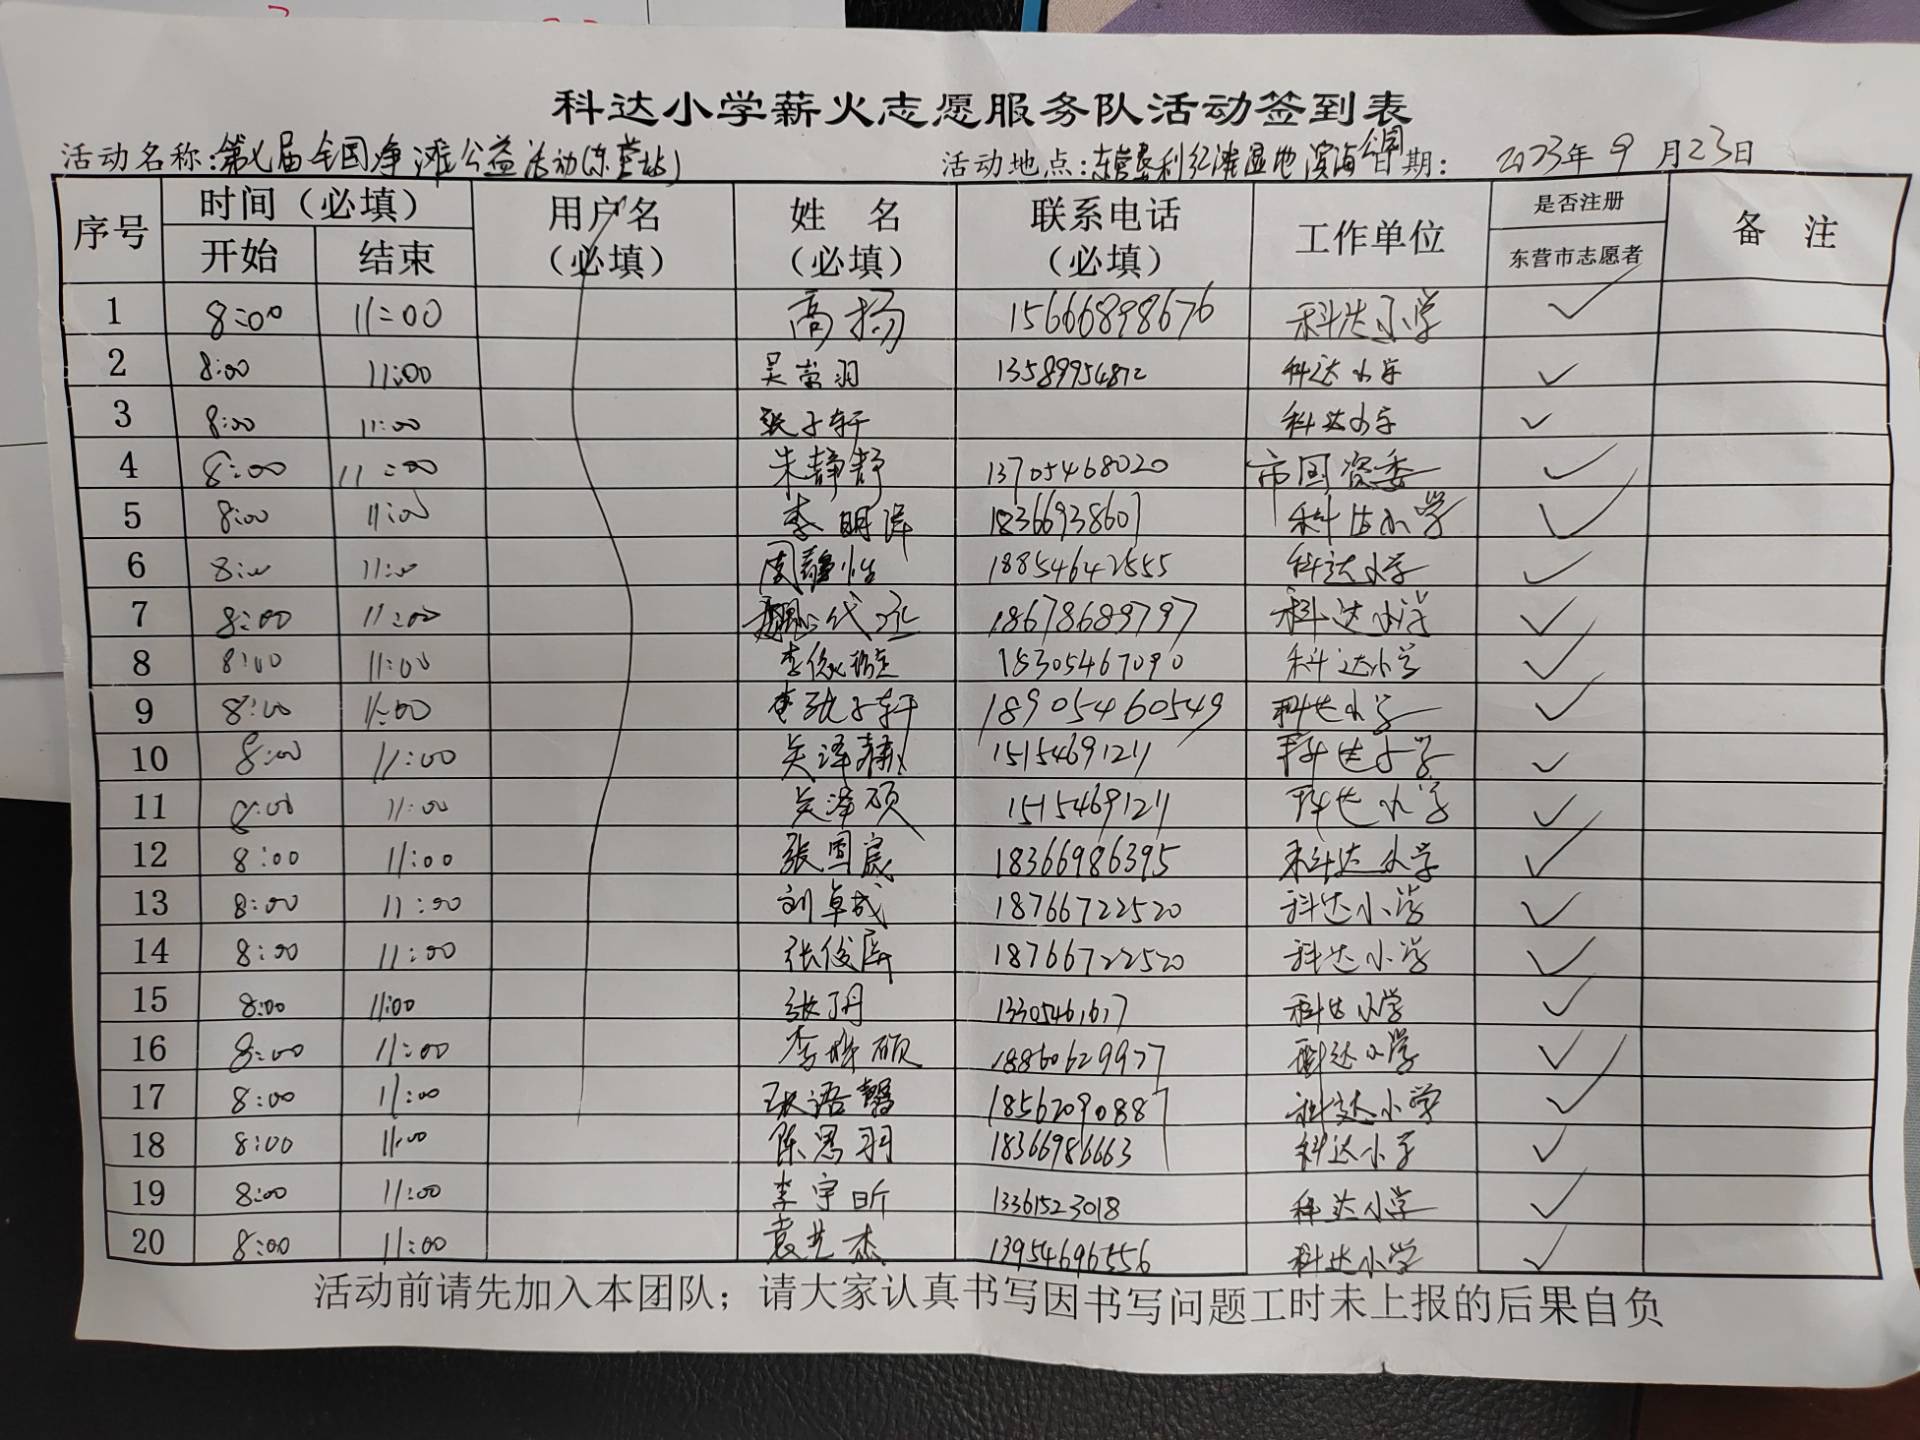 科达小学薪火志愿服务队活动签到表
活动名称:第七届全国净滩公益活动(东营站) 活动地点:东营垦利红滩湿地滨海公园 日期: 2023年9月23日
序号 时间(必填) 用户名(必填) 姓 名(必填) 联系电话(必填) 工作单位 是否注册 备 注
开始 结束 东营市志愿者
1 8:00 11:00 高扬 15666898676 科达小学 ✓
2 8:00 11:00 吴崇羽 13589954812 科达小学 ✓
3 8:00 11:00 张子轩 科达小学 ✓
4 8:00 11:00 朱静舒 13705468020 市国资委 ✓
5 8:00 11:00 李明泽 18366938607 科达小学 ✓
6 8:00 11:00 周静怡 18854642555 科达小学 ✓
7 8:00 11:00 18678689797 科达小学 ✓
8 8:00 11:00 李依 18305467090 科达小学 ✓
9 8:00 11:00 张子轩 18905460549 科达小学 ✓
10 8:00 11:00 吴泽 15154691211 科达小学 ✓
11 8:00 11:00 吴泽硕 15154691211 科达小学 ✓
12 8:00 11:00 张国宸 18366986395 科达小学 ✓
13 8:00 11:00 刘卓成 18766722520 科达小学 ✓
14 8:00 11:00 张俊 18766722520 科达小学 ✓
15 8:00 11:00 张 13305461617 科达小学 ✓
16 8:00 11:00 李 硕 18860629977 科达小学 ✓
17 8:00 11:00 语馨 18562090887 科达小学 ✓
18 8:00 11:00 陈思羽 18366986663 科达小学 ✓
19 8:00 11:00 李宇昕 13361523018 科达小学 ✓
20 8:00 11:00 袁艺杰 13954696556 科达小学 ✓
活动前请先加入本团队；请大家认真书写因书写问题工时未上报的后果自负